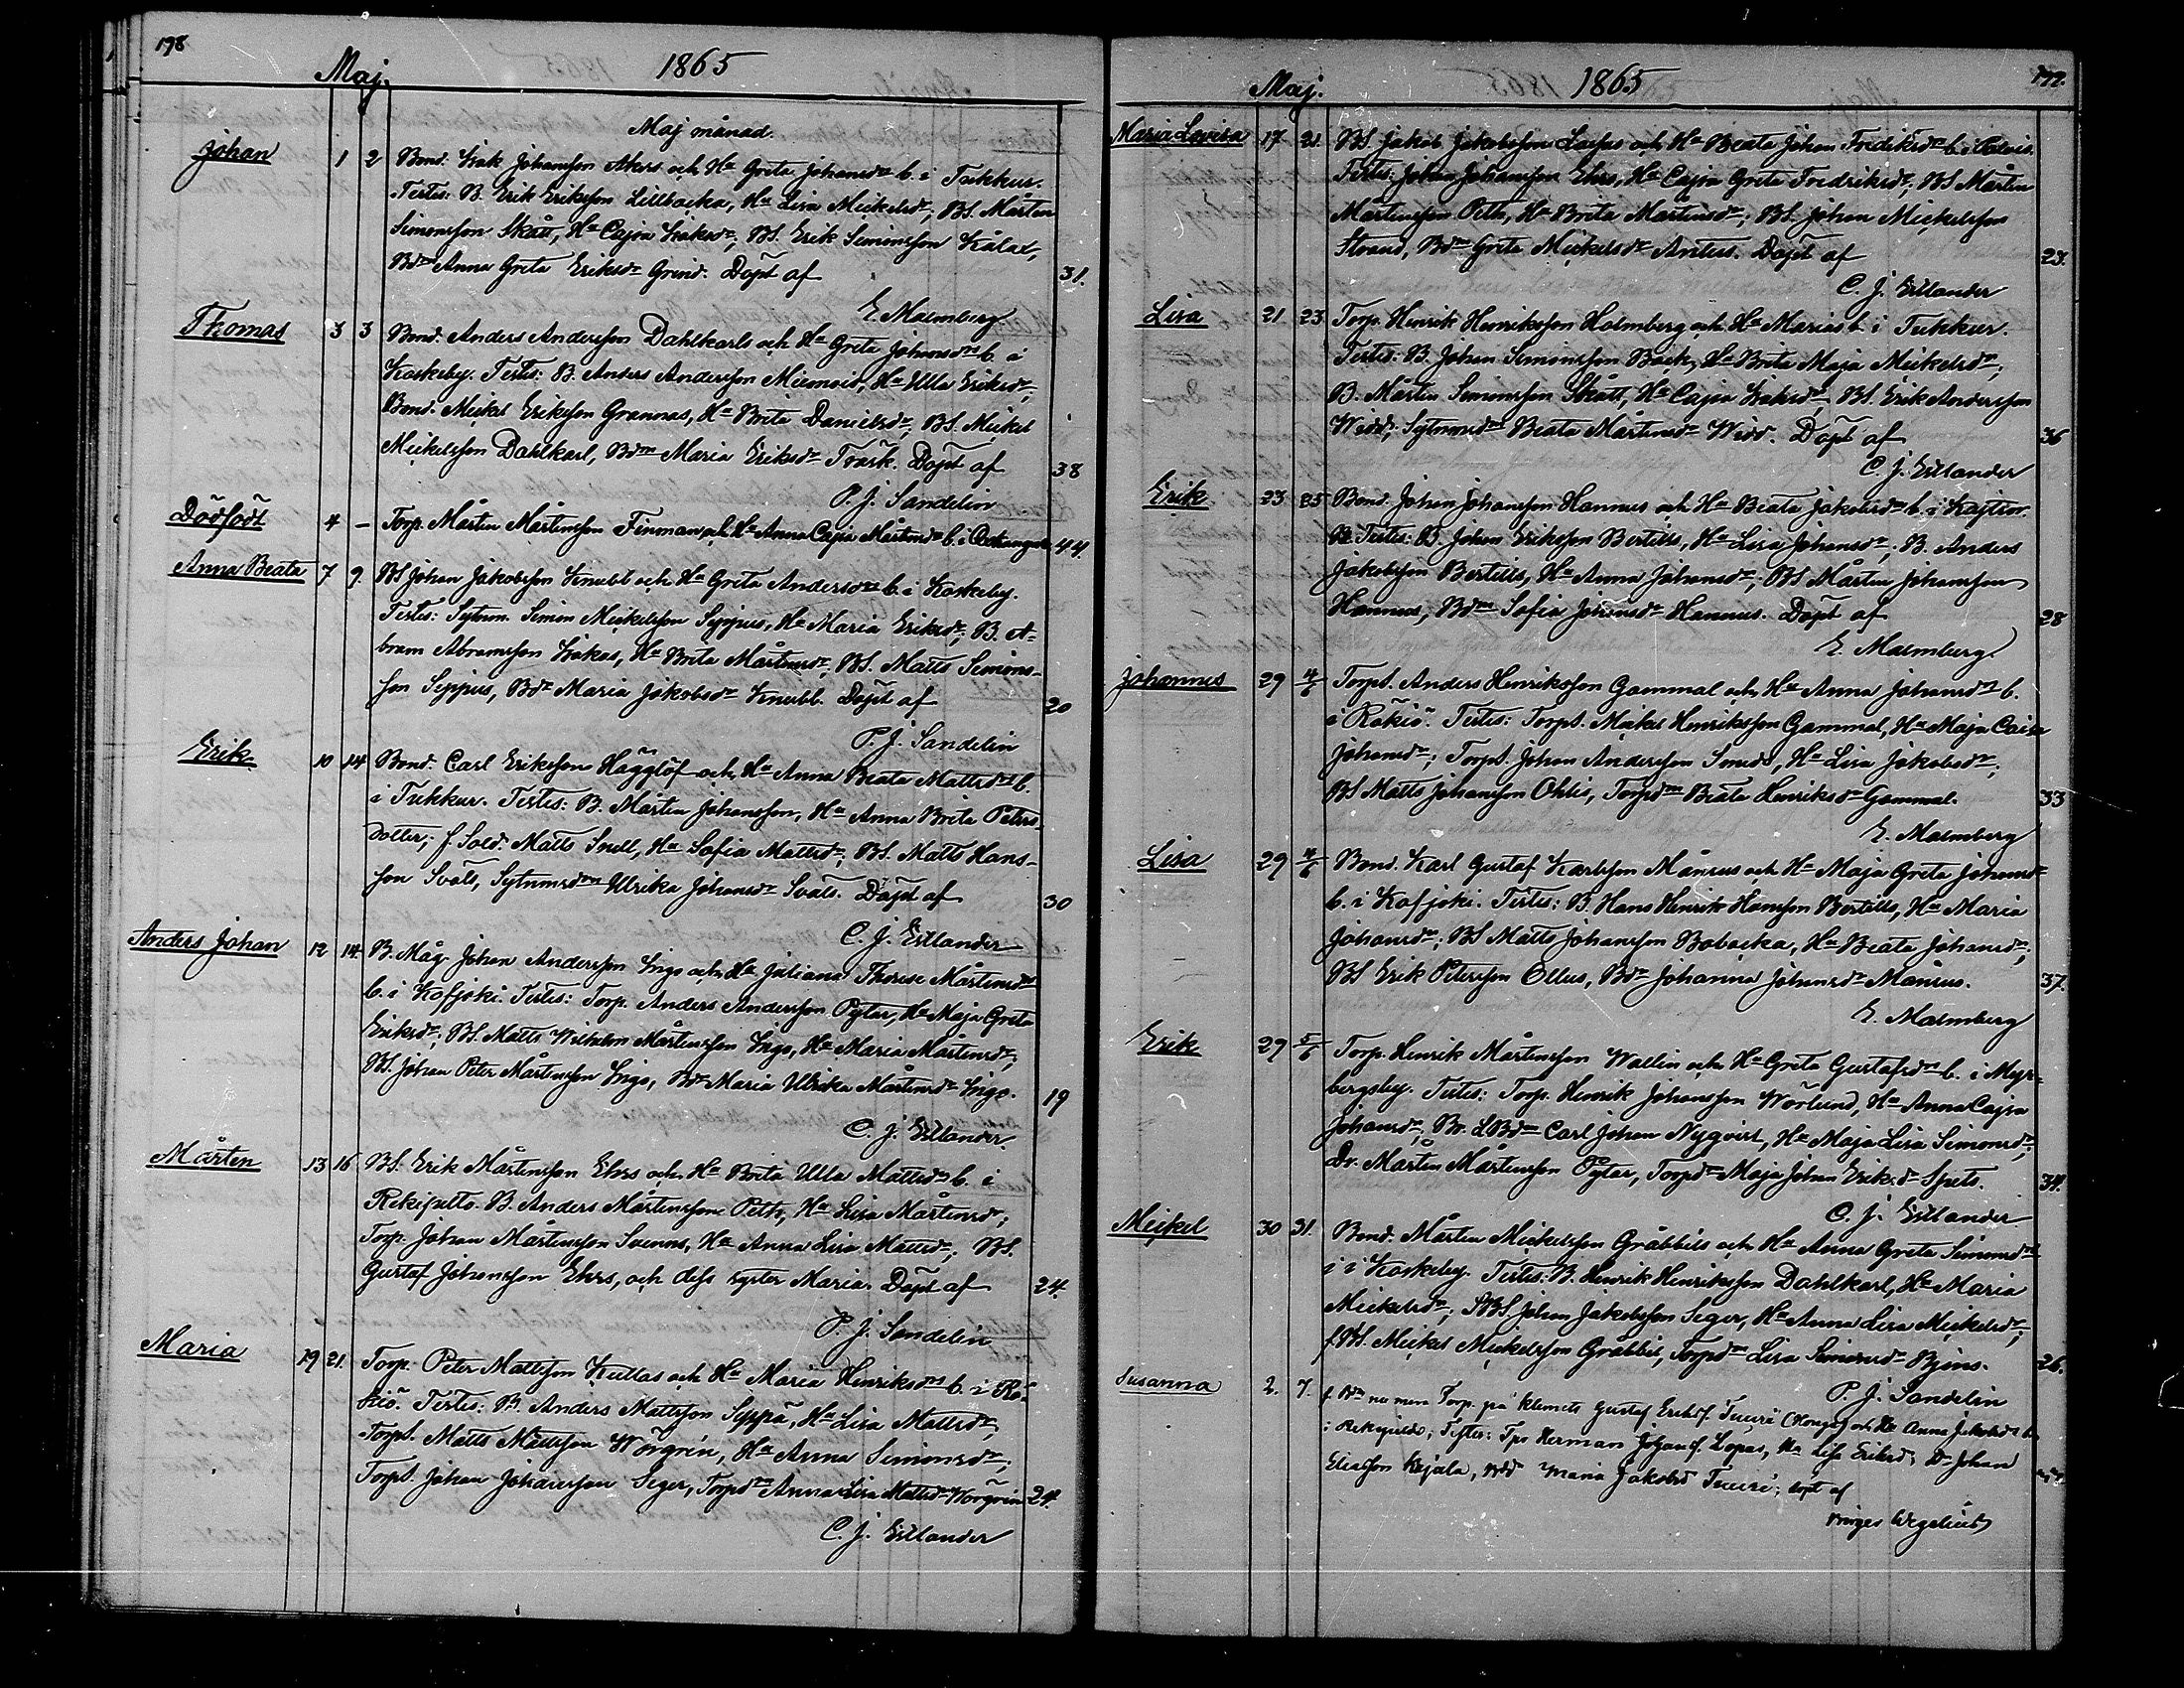 198
Maj. 1865
Maj månad.
Johan 1 2 Bond. Isak Johansson Akers och Hu Greta Johansdr b. i Tukkur.
Testes: B. Erik Eriksson Lillbacka, Hu Lisa Mickelsdr; BS. Mårten
Simonsson Skått, Hu Cajsa Isaksdr; BS. Erik Simonsson Kålax,
Bdr Anna Greta Eriksdr Grind. Döpt af 31.
E. Malmberg
Thomas 3 3 Bond. Anders Andersson Dahlkarls och Hu Greta Johansdr b. i
Koskeby. Testes: B. Anders Andersson Miemois, Hu Ulla Eriksdr;
Bond. Mickel Eriksson Grannas, Hu Brita Danielsdr; BS. Mickel
Mickelsson Dahlkarl, Bdr Maria Eriksdr Tvärk. Döpt af 38
P. J. Sandelin
Dödfödt 4 – Torp. Mårten Mårtensson Finman och Hu Anna Cajsa Mårtensdr b. i 44.
Anna Beata 7 9. BS Johan Jakobsson Knubb och Hu Greta Andersdr b. i Koskeby.
Testes: Sytnm. Simon Mickelsson Seppus, Hu Maria Eriksdr; B. A-
bram Abramsson Isakas, Hu Brita Mårtensdr; BS. Matts Simons-
son Seppus, Bdr Maria Jakobsdr Knubb. Döpt af 20
P. J. Sandelin
Erik 10 14 Bond. Carl Eriksson Hägglöf och Hu Anna Beata Mattsdr b.
i Tukkur. Testes: B. Mårten Johansson, Hu Anna Brita Peters-
dotter; f. Sold. Matts Snell, Hu Sofia Mattsdr; BS. Matts Hans-
son Svals, Sytnmsdr Ulrika Johansdr Svals. Döpt af 30
C. J. Estlander
Anders Johan 12 14. B. Måg. Johan Andersson Ingo och Hu Juliana Therese Mårtensdr
b. i Kofjoki. Testes: Torp. Anders Andersson Pytar, Hu Maja Greta
Eriksdr; BS. Matts Wilhelm Mårtensson Ingo, Hu Maria Mårtensdr;
BS. Johan Peter Mårtensson Ingo, Bdr Maria Ulrika Mårtensdr Ingo. 19
C. J. Estlander.
Mårten 13 16 BS. Erik Mårtensson Ehrs och Hu Brita Ulla Mattsdr b. i
Rekipelto. B. Anders Mårtensson Peth, Hu Lisa Mårtensdr;
Torp. Johan Mårtensson Svenns, Hu Anna Lisa Mattsdr; BS.
Gustaf Johansson Ehrs, och dess syster Maria. Döpt af 24.
P. J. Sandelin
Maria 19 21. Torp. Peter Mattsson Kullas och Hu Maria Henriksdr b. i Rö-
kiö. Testes: B. Anders Mattsson Seppä, Hu Lisa Mattsdr;
Torpt. Matts Mattsson Wörgrén, Hu Anna Simonsdr;
Torpt. Johan Johansson Seger, Torpdr Anna Lisa Mattsdr Wörgrén 24.
C. J. Estlander
Maj. 1865 199.
Maria Lovisa 17 21. BS. Jakob Jakobsson Lassas och Hu Beata Johan Frediksdr b. i
Testes: Johan Johansson Ehrs, Hu Cajsa Greta Fredriksdr; BS Mårten
Mårtensson Peth, Hu Brita Mårtensdr; BS. Johan Mickelsson
Strand, Bdr Greta Mickelsdr Antus. Döpt af 23.
C. J. Estlander
Lisa 21. 23 Torp. Henrik Henriksson Holmberg och Hu Maria b. i Tukkur.
Testes: B. Johan Simonsson Back, Hu Brita Maja Mickelsdr;
B. Mårten Simonsson Skått, Hu Cajsa Isaksdr; BS. Erik Andersson
Widd, Sytnmsdr Beata Mårtensdr Widd. Döpt af 36
C. J. Estlander
Erik 23 25 Bond. Johan Johansson Hannus och Hu Beata Jakobsdr b. i Kaytser.
Testes: B. Johan Eriksson Bertills, Hu Lisa Johansdr; B. Anders
Jakobsson Bertills, Hu Anna Johansdr; BS Mårten Johansson
Hannus, Bdr Sofia Johansdr Hannus. Döpt af 28
E. Malmberg.
Johannes 29 4/6 Torpt. Anders Henriksson Gammal och Hu Anna Johansdr b.
i Rökiö. Testes: Torpt. Mickel Henriksson Gammal, Hu Maja Caisa
Johansdr; Torpt. Johan Andersson Smeds, Hu Lisa Jakobsdr;
BS Matts Johansson Ohls, Torpdr Beata Henriksdr Gammal. 33
E. Malmberg
Lisa 29 4/6 Bond. Karl Gustaf Karlsson Månsus och Hu Maja Greta Johansdr
b. i Kofjoki. Testes: B Hans Henrik Hansson Bertills, Hu Maria
Johansdr; BS Matts Johansson Bobacka, Hu Beata Johansdr;
BS Erik Petersson Ollus, Bdr Johanna Johansdr Månsus. 37.
E. Malmberg
Erik 29 5/6 Torp. Henrik Mårtensson Wallin och Hu Greta Gustafsdr b. i Myr-
bergsby. Testes: Torp. Henrik Johansson Wörlund, Hu Anna Cajsa
Johansdr; Br. Carl Johan Nyqvist, Hu Maja Lisa Simonsdr;
Dr. Mårten Mårtensson Pytar, Torpdr Maja Johan Eriksdr Spets. 34.
C. J. Estlander
Mickel 30 31. Bond. Mårten Mickelsson Gråbbils och Hu Anna Greta Simonsdr
i i Koskeby. Testes: B. Henrik Henriksson Dahlkarl, Hu Maria
Mickelsdr; BS Johan Jakobsson Seger, Hu Anna Lisa Mickelsdr;
f. BS. Mickel Mickelsson Gråbbil, Torpdr Lisa Simonsdr Björns. 26.
P. J. Sandelin
Susanna 2. 7. f. Bdn nu mera Torp. på Klemets Gustaf Eriksf. Tuuri och Hu Anna Jakobsdr b.
i Rekipeldo; Testes: Tpr Herman Johansf. Lopas, Hu Lisa Eriksdr; Dr Johan
Eliasson Kejala, Maria Jakobsd Tuuri; döpt af
Birger Wegelius